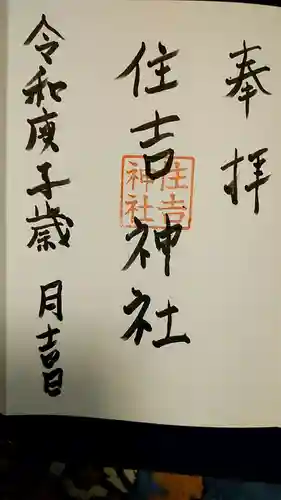 奉拝
住吉神社
住吉神社
令和庚子歳 月吉日